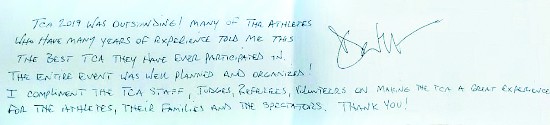 TCA 2019 WAS OUTSTANDING! MANY OF THR ATHLETES
WHO HAVE MANY YEARS OF EXPERIENCE TOLD ME THIS
THE BEST TCA THEY HAVE EVER PARTICIPATED IN.
THE ENTIRE EVENT WAS WELL PLANNED AND ORGANIZED!
I COMPLIMENT THE TCA STAFF, JUDGES, REFEREES, VOLUNTEERS ON MAKING THE TCA A GREAT EXPERIENCE
FOR THE ATHLETES, THEIR FAMILIES AND THE SPECTATORS. THANK YOU!